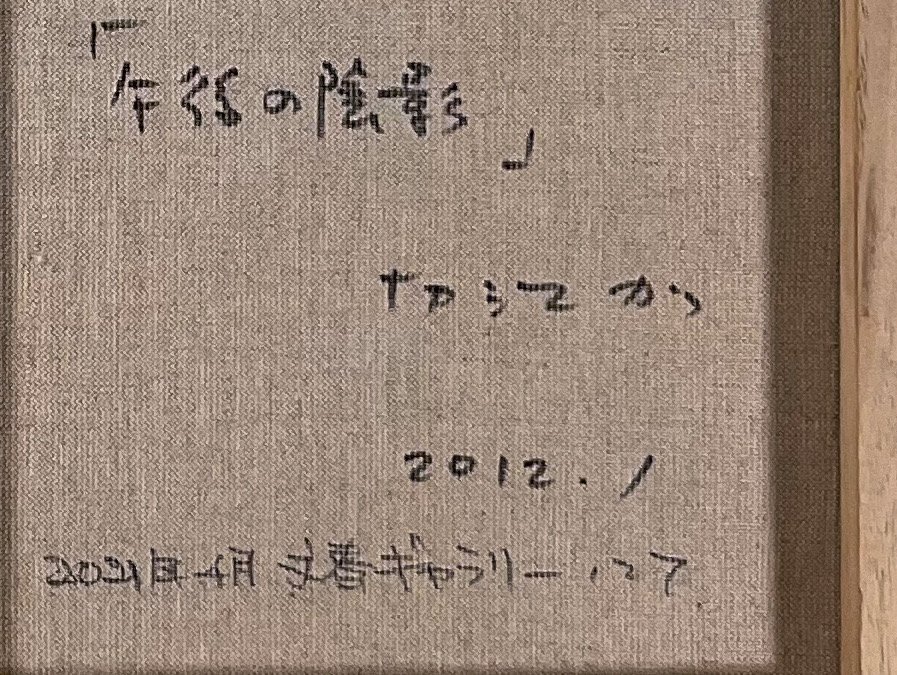 「午後の陰影」
ナカシマ カツ
2012.1
2021年4月 ギャラリーにて